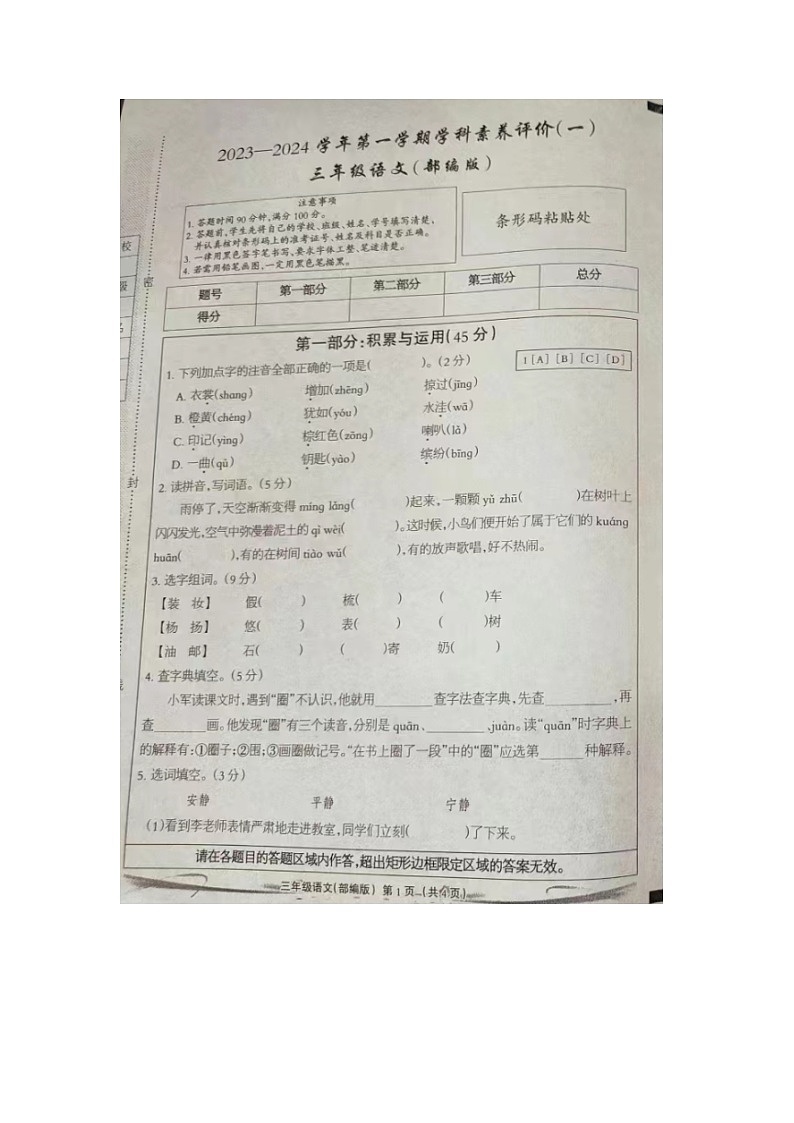 2023—2024 学年第一学期学科素养评价(一)
三年级语文(部编版)
注意事项
1. 答题时间90分钟,满分100分。
2. 答题前,学生先将自己的学校、班级、姓名、学号填写清楚,
并认真核对条形码上的准考证号、姓名及科目是否正确。
3. 一律用黑色签字笔书写,要求字体工整、笔迹清楚。
4. 若需用铅笔画图,一定用黑色笔描黑。
条形码粘贴处
题号 第一部分 第二部分 第三部分 总分
得分
校
级
名
密
封
线
第一部分:积累与运用(45分)
1. 下列加点字的注音全部正确的一项是( )。(2分)
1 [A] [B] [C] [D]
A. 衣裳(shang) 增加(zhēng) 掠过(jīng)
B. 橙黄(chéng) 犹如(yóu) 水洼(wā)
C. 印记(yìng) 棕红色(zōng) 喇叭(lǎ)
D. 一曲(qǔ) 钥匙(yào) 缤纷(bīng)
2. 读拼音,写词语。(5分)
雨停了,天空渐渐变得 míng lǎng( )起来,一颗颗 yǔ zhū( )在树叶上
闪闪发光,空气中弥漫着泥土的 qì wèi( )。这时候,小鸟们便开始了属于它们的 kuáng
huān( ),有的在树间 tiào wǔ( ),有的放声歌唱,好不热闹。
3. 选字组词。(9分)
【装 妆】 假( ) 梳( ) ( )车
【杨 扬】 悠( ) 表( ) ( )树
【油 邮】 石( ) ( )寄 奶( )
4. 查字典填空。(5分)
小军读课文时,遇到“圈”不认识,他就用______查字法查字典,先查______,再
查______画。他发现“圈”有三个读音,分别是 quān、______、juàn。读“quān”时字典上
的解释有:①圈子;②围;③画圈做记号。“在书上圈了一段”中的“圈”应选第______种解释。
5. 选词填空。(3分)
安静 平静 宁静
(1)看到李老师表情严肃地走进教室,同学们立刻( )了下来。
请在各题目的答题区域内作答,超出矩形边框限定区域的答案无效。
三年级语文(部编版) 第1页 (共4页)